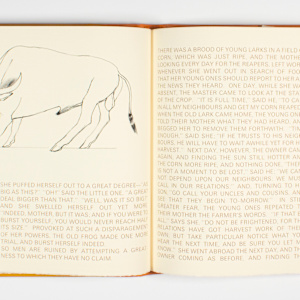 SHE PUFFED HERSELF OUT TO A GREAT DEGREE.
AS BIG AS THIS?" "OH!" SAID THE LITTLE ONE, "A GREAT
DEAL BIGGER THAN THAT." "WAS IT SO BIG?"
AND SHE SWELLED HERSELF OUT YET MORE.
INDEED, MOTHER, BUT IT WAS; AND IF YOU WERE TO
BURST YOURSELF, YOU WOULD NEVER REACH HALF
ITS SIZE." PROVOKED AT SUCH A DISPARAGEMENT
OF HER POWERS, THE OLD FROG MADE ONE MORE
TRIAL, AND BURST HERSELF INDEED.
SO MEN ARE RUINED BY ATTEMPTING A GREAT-
NESS TO WHICH THEY HAVE NO CLAIM.
THERE WAS A BROOD OF YOUNG LARKS IN A FIELD OF
CORN, WHICH WAS JUST RIPE, AND THE MOTHER,
LOOKING EVERY DAY FOR THE REAPERS, LEFT WORD,
WHENEVER SHE WENT OUT IN SEARCH OF FOOD,
THAT HER YOUNG ONES SHOULD REPORT TO HER ALL
THE NEWS THEY HEARD. ONE DAY, WHILE SHE WAS
ABSENT, THE MASTER CAME TO LOOK AT THE STATE
OF THE CROP. "IT IS FULL TIME," SAID HE, "TO CALL
IN ALL MY NEIGHBOURS AND GET MY CORN REAPED."
WHEN THE OLD LARK CAME HOME, THE YOUNG ONES
TOLD THEIR MOTHER WHAT THEY HAD HEARD, AND
BEGGED HER TO REMOVE THEM FORTHWITH. "TIME
ENOUGH," SAID SHE; "IF HE TRUSTS TO HIS NEIGH-
BOURS, HE WILL HAVE TO WAIT AWHILE YET FOR HIS
HARVEST." NEXT DAY, HOWEVER, THE OWNER CAME
AGAIN, AND FINDING THE SUN STILL HOTTER AND
THE CORN MORE RIPE, AND NOTHING DONE, "THERE
IS NOT A MOMENT TO BE LOST," SAID HE; "WE CANNOT
DEPEND UPON OUR NEIGHBOURS: WE MUST
CALL IN OUR RELATIONS;" AND, TURNING TO HIS
SON, "GO CALL YOUR UNCLES AND COUSINS, AND
SEE THAT THEY BEGIN TO-MORROW." IN STILL
GREATER FEAR, THE YOUNG ONES REPEATED TO
THEIR MOTHER THE FARMER'S WORDS. "IF THAT BE
ALL," SAYS SHE, "DO NOT BE FRIGHTENED, FOR THE
RELATIONS HAVE GOT HARVEST WORK OF THEIR
OWN; BUT TAKE PARTICULAR NOTICE WHAT YOU
HEAR THE NEXT TIME, AND BE SURE YOU LET ME
KNOW." SHE WENT ABROAD THE NEXT DAY, AND THE
OWNER COMING AS BEFORE, AND FINDING THE